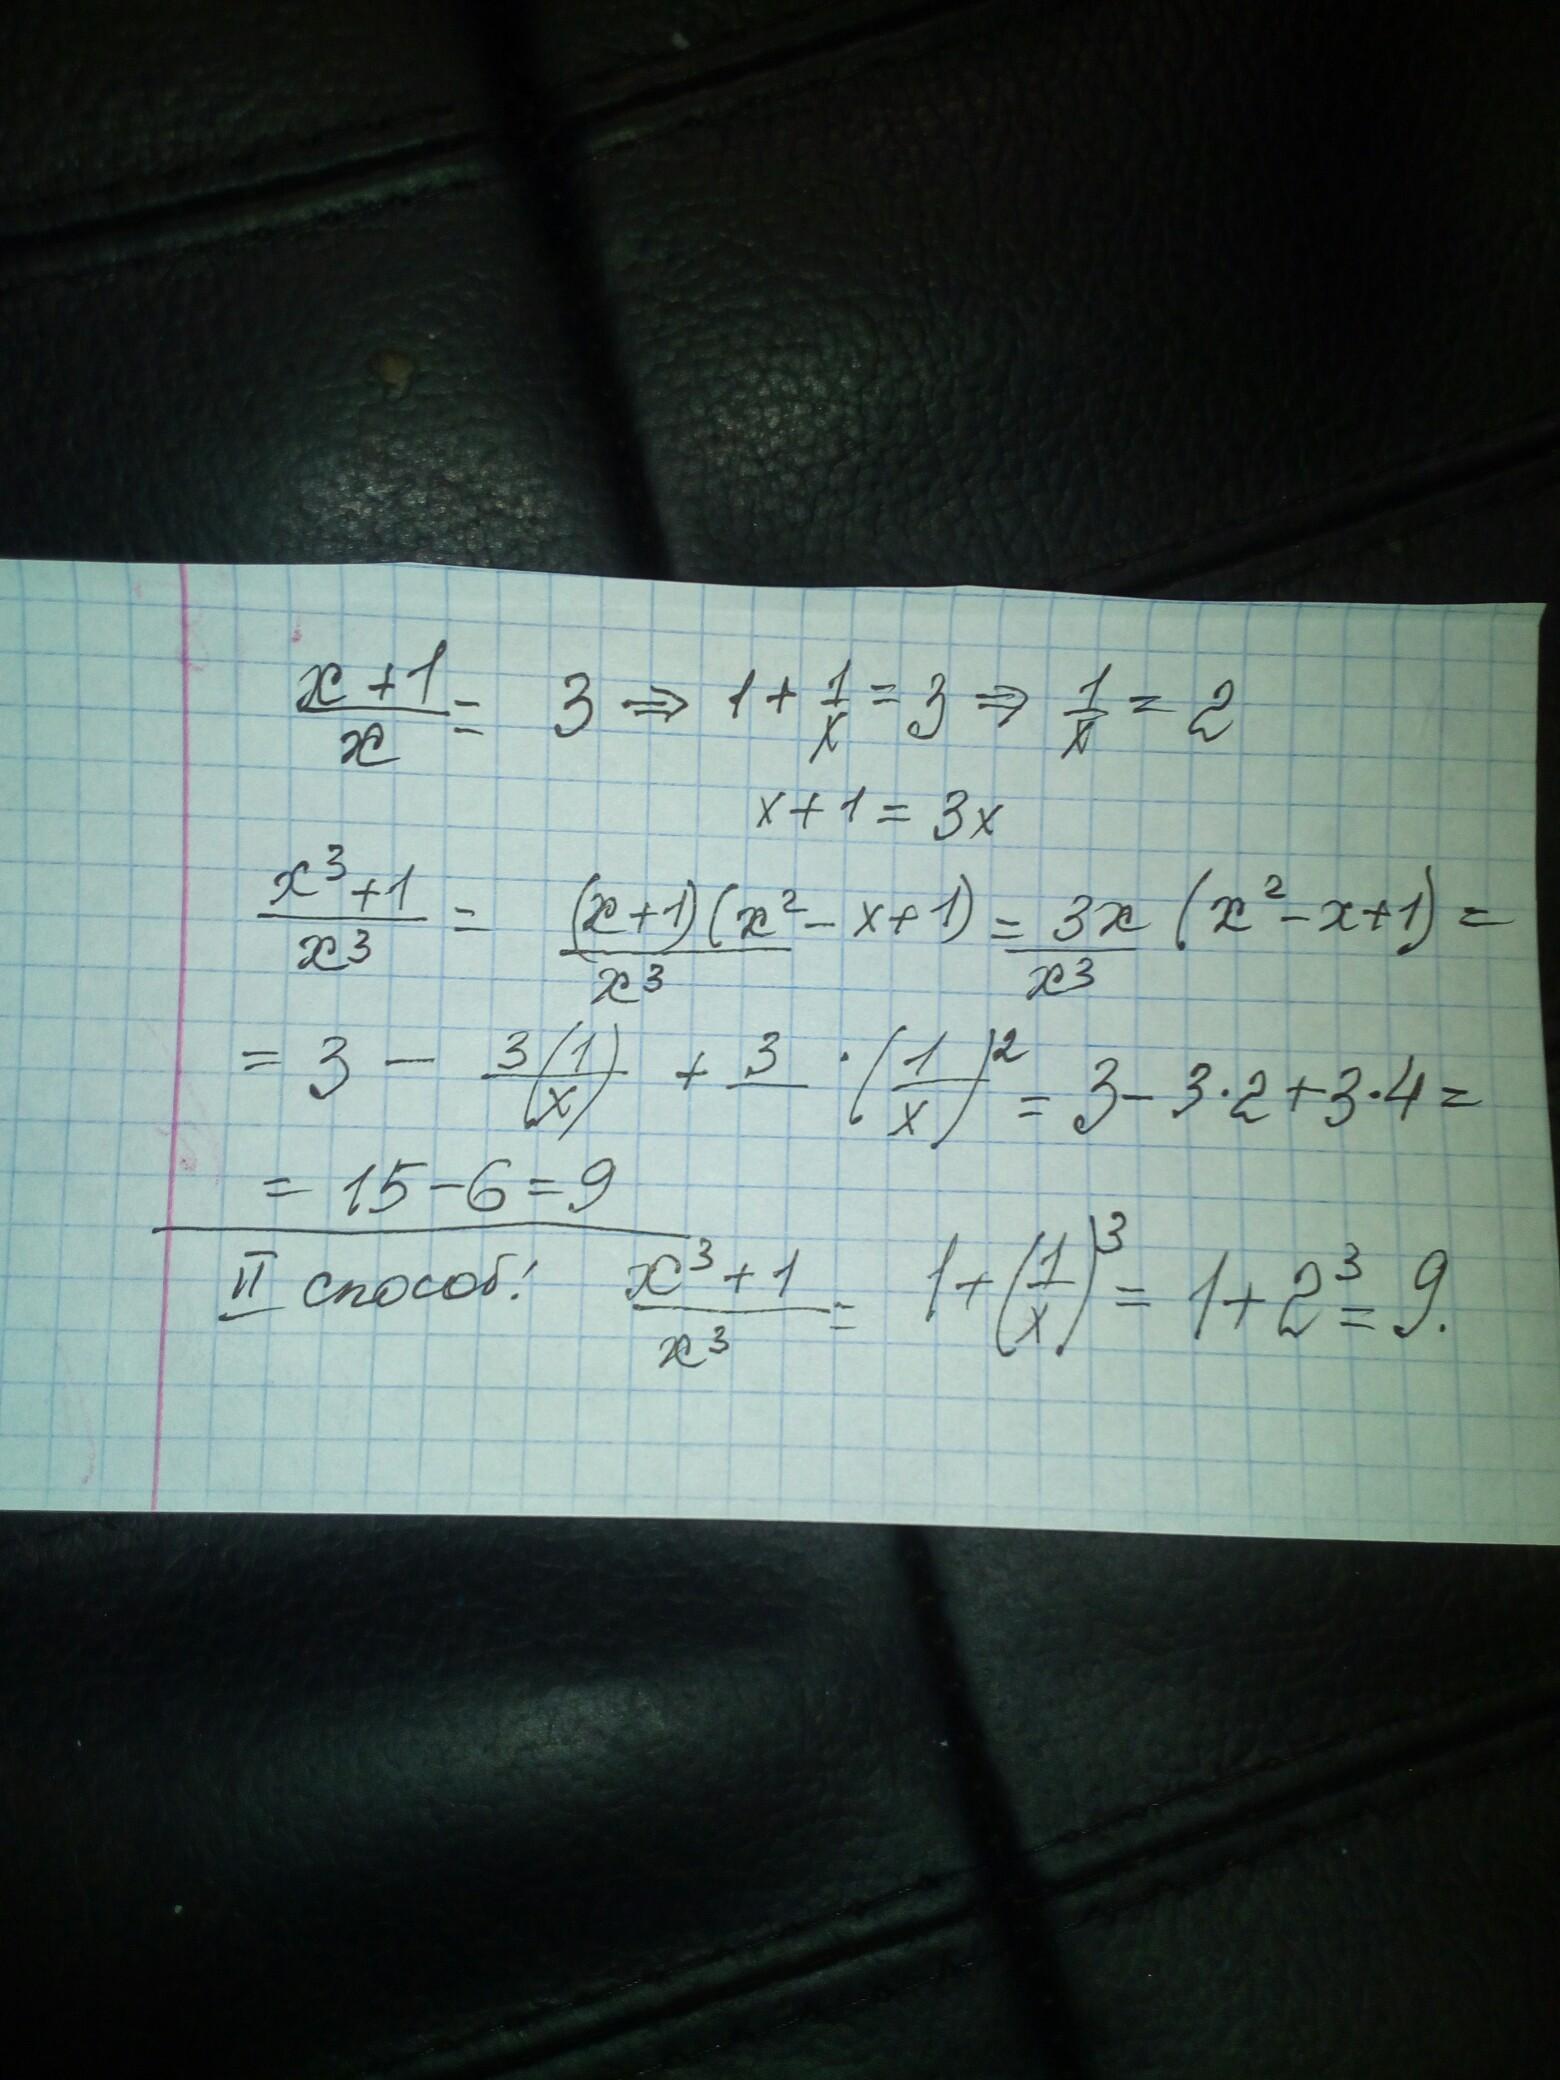 (x+1)/x = 3 ⇒ 1 + 1/x = 3 ⇒ 1/x = 2
x + 1 = 3x
(x³+1)/x³ = (x+1)(x²-x+1)/x³ = 3x/x³ (x²-x+1) =
= 3 - 3(1/x) + 3 · (1/x)² = 3 - 3·2 + 3·4 =
= 15 - 6 = 9
II способ: (x³+1)/x³ = 1 + (1/x)³ = 1 + 2³ = 9.